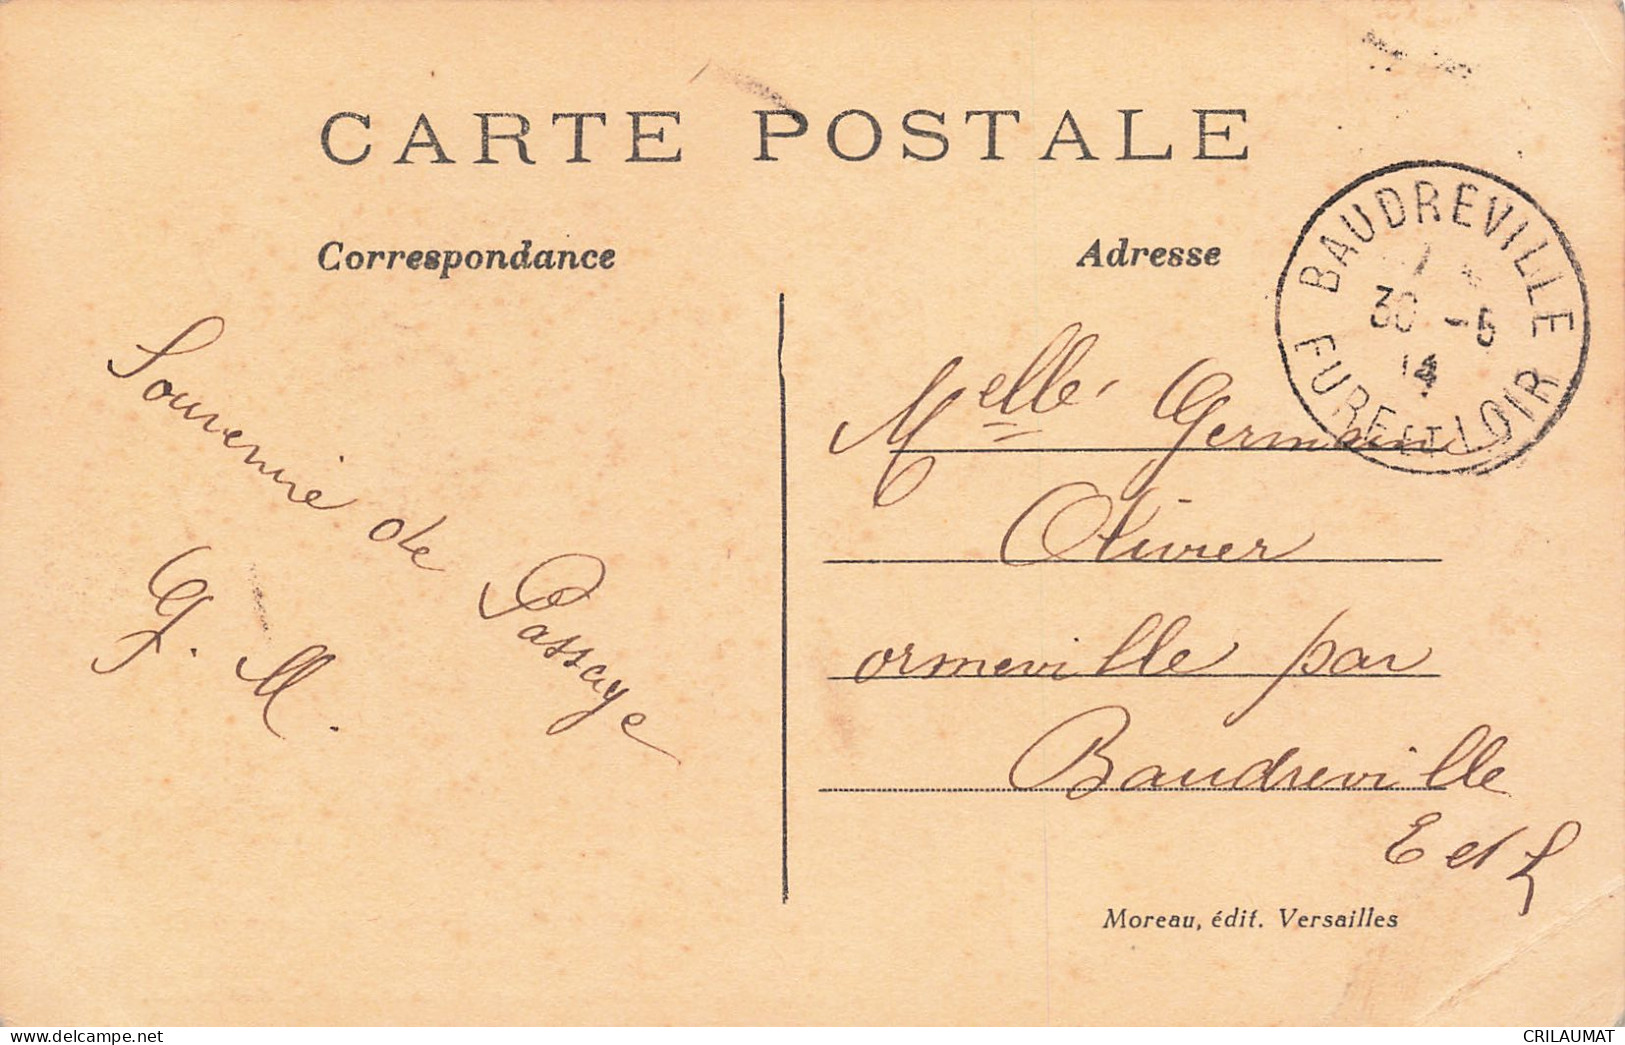 CARTE POSTALE
Correspondance
Adresse
BAUDREVILLE
30 -5
14
EURE ET LOIR
Souvenir de Passage
G. M.
Melle Germaine
Olivier
ormeville par
Baudreville
E et L
Moreau, édit. Versailles
https://www.delcampe.net
CRILAUMAT